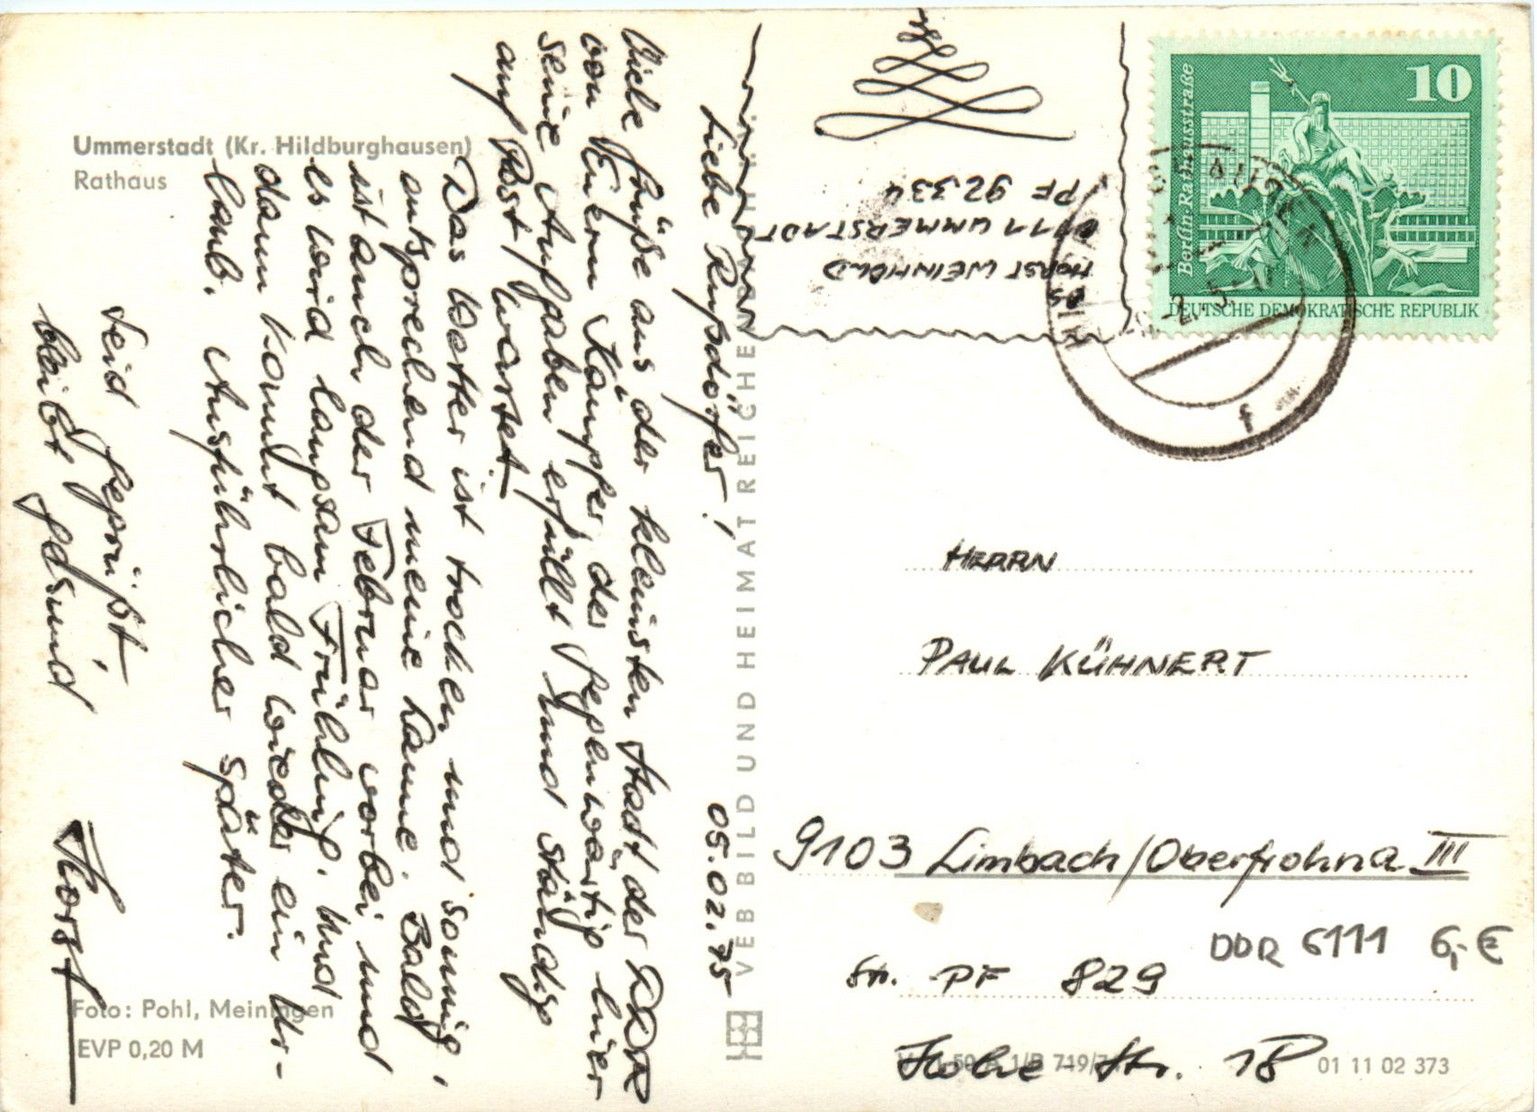 Ummerstadt (Kr. Hildburghausen)
Rathaus
05.02.75
Liebe Rußdörfer!
Viele Grüße aus der kleinsten Stadt der DDR
von Euerm Kämpfer der gegenwärtig hier
seine Aufgaben erfüllt und ständig
auf Post wartet.
Das Wetter ist trocken und sonnig,
entsprechend meine Laune. Bald
ist auch der Februar vorbei und
es wird langsam Frühling. Und
dann kommt bald wieder ein Ur-
laub. Ausführlicher später.
Seid gegrüßt,
bleibt gesund
Horst
Foto: Pohl, Meiningen
EVP 0,20 M
VEB BILD UND HEIMAT REICHENBACH
HORST WEINHOLD
6111 UMMERSTADT
PF 92334
10
Berlin, Rathausstraße
DEUTSCHE DEMOKRATISCHE REPUBLIK
HERRN
PAUL KÜHNERT
9103 Limbach/Oberfrohna III
Str. PF 829
DDR 6111 6,- €
Hohe Str. 18
01 11 02 373